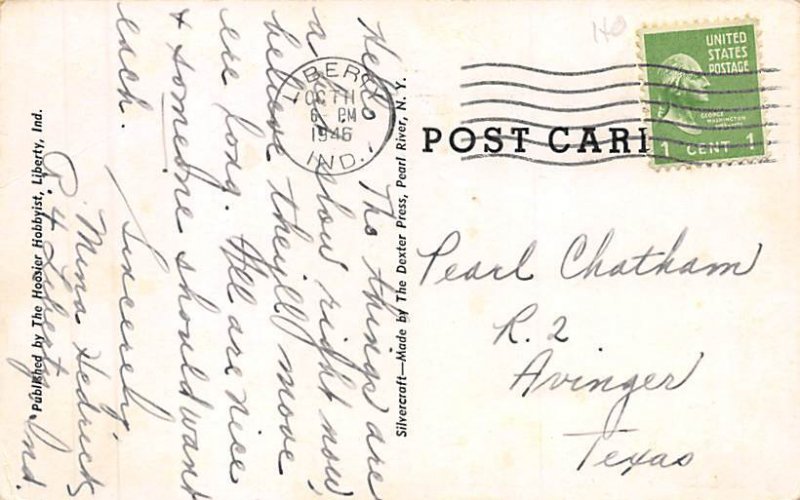 Hello - The things are
a slow right now,
believe they'll move
ere long. All are nice
& someone should want
each.
Sincerely,
Mina Hedrick
R 4 Liberty, Ind.
Published by The Hoosier Hobbyist, Liberty, Ind.
Silvercraft—Made by The Dexter Press, Pearl River, N. Y.
LIBERTY
OCT 11
6 - PM
1946
IND.
POST CARD
UNITED
STATES
POSTAGE
GEORGE
WASHINGTON
1 CENT 1
Pearl Chatham
R. 2
Avinger
Texas